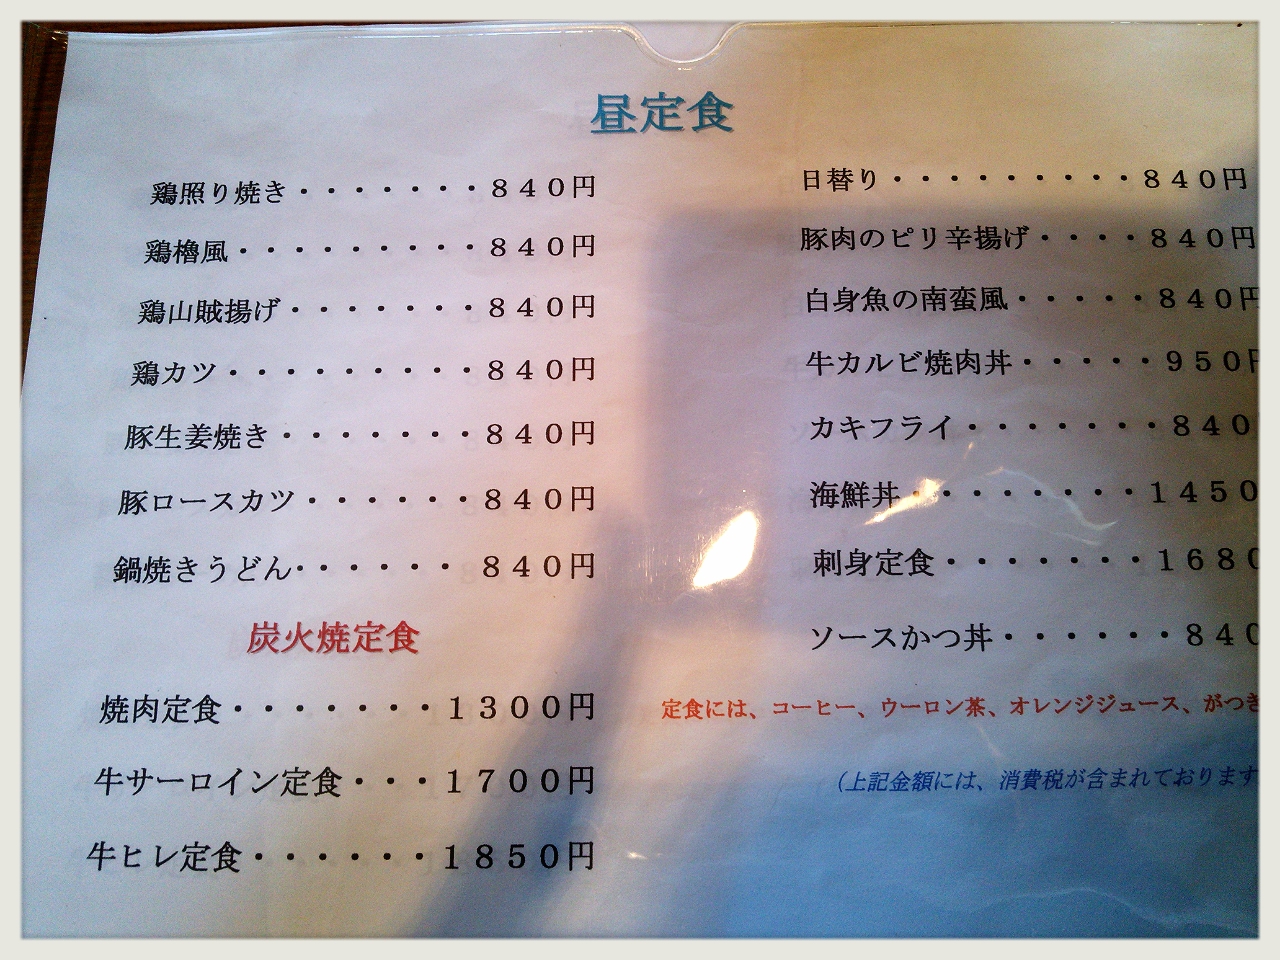 昼定食
鶏照り焼き・・・・・・・８４０円
鶏櫓風・・・・・・・・・８４０円
鶏山賊揚げ・・・・・・・８４０円
鶏カツ・・・・・・・・・８４０円
豚生姜焼き・・・・・・・８４０円
豚ロースカツ・・・・・・８４０円
鍋焼きうどん・・・・・・８４０円
炭火焼定食
焼肉定食・・・・・・・１３００円
牛サーロイン定食・・・１７００円
牛ヒレ定食・・・・・・１８５０円
日替り・・・・・・・・・・８４０円
豚肉のピリ辛揚げ・・・・８４０円
白身魚の南蛮風・・・・・８４０円
牛カルビ焼肉丼・・・・・９５０円
カキフライ・・・・・・・８４０
海鮮丼・・・・・・・・１４５０
刺身定食・・・・・・・１６８０
ソースかつ丼・・・・・・８４０
定食には、コーヒー、ウーロン茶、オレンジジュース、がつき
（上記金額には、消費税が含まれております